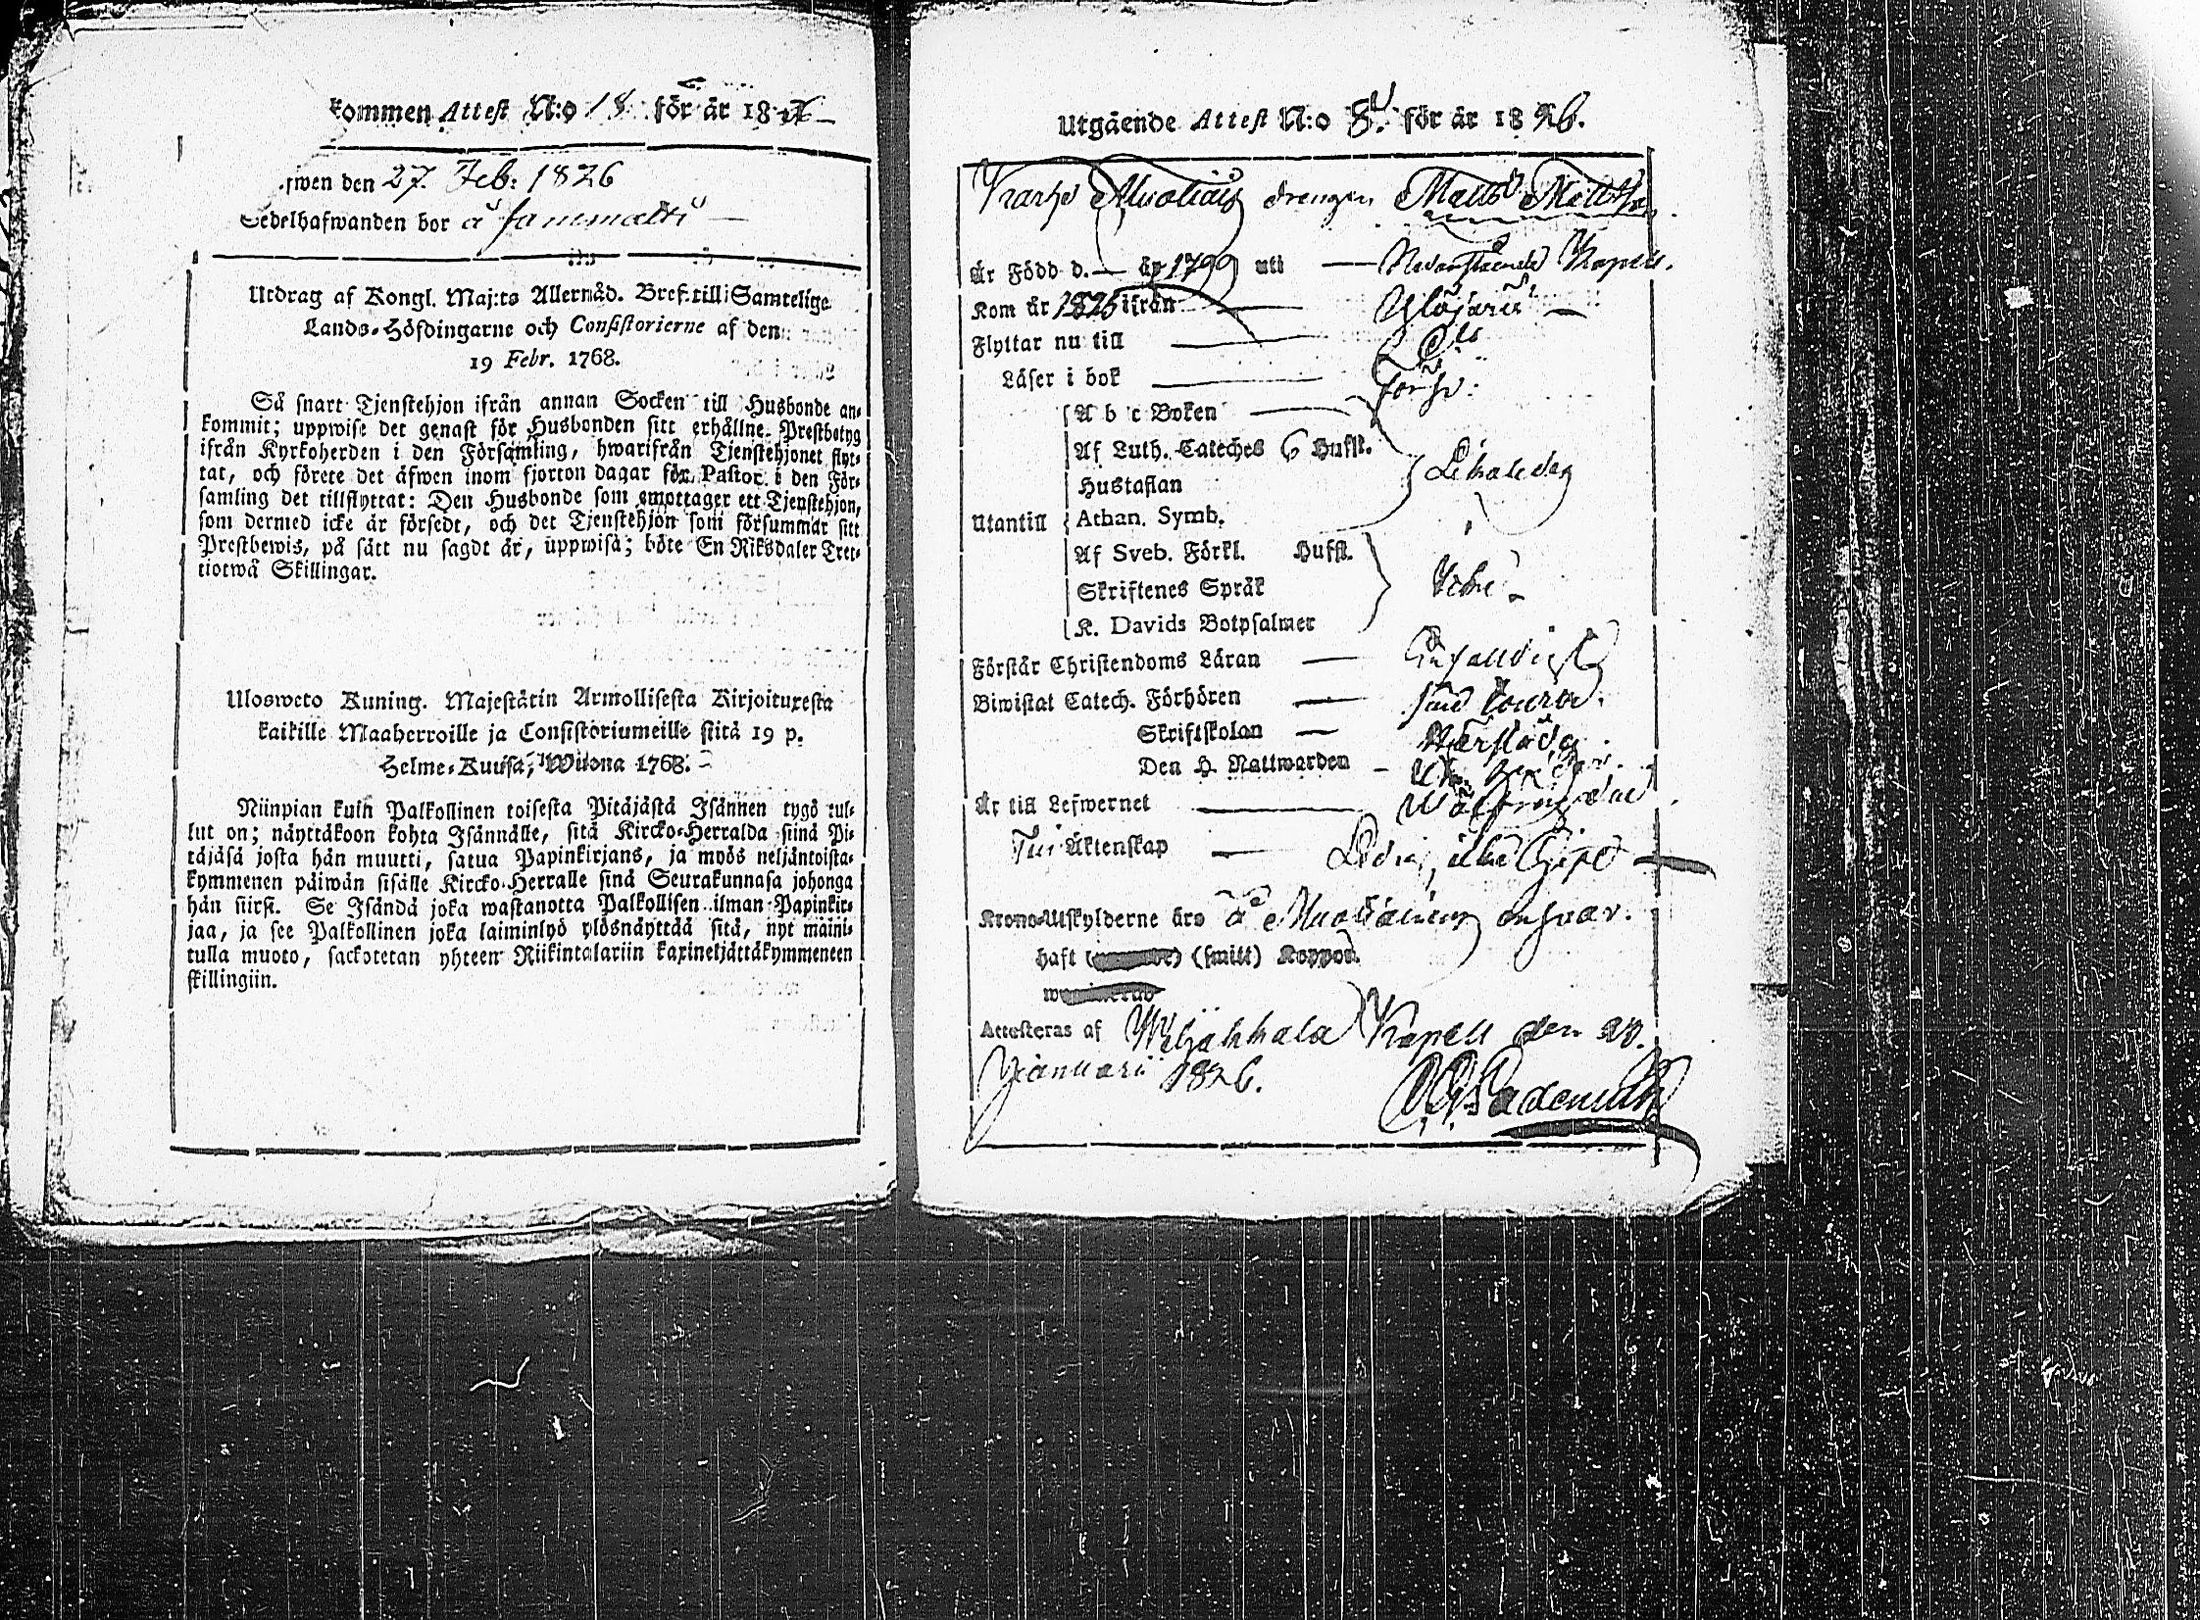 kommen Attest N:o 18 för år 1826
fwen den 27. Feb: 1826
Sedelhafwanden bor å
Utdrag af Kongl. Maj:ts Allernåd. Bref till Samtelige
Lands-Höfdingarne och Consistorierne af den
19 Febr. 1768.
Så snart Tjenstehjon ifrån annan Socken till Husbonde an-
kommit; uppwise det genast för Husbonden sitt erhållne Prestbetyg
ifrån Kyrkoherden i den Församling, hwarifrån Tjenstehjonet flyt-
tat, och förete det äfwen inom fjorton dagar för Pastor i den För-
samling det tillflyttat: Den Husbonde som emottager ett Tjenstehjon,
som dermed icke är försedt, och det Tjenstehjon som försummar sitt
Prestbewis, på sätt nu sagdt är, uppwisa; böte En Riksdaler Tret-
tiotwå Skillingar.
Ulosweto Kuning. Majestätin Armollisesta Kirjoituxesta
kaikille Maaherroille ja Consistoriumeille siitä 19 p.
Helme-Kuusa, Wuonna 1768.
Niinpian kuin Palkollinen toisesta Pitäjästä Isännen tygö tul-
lut on; näyttäkoon kohta Isännälle, sitä Kircko-Herralda siinä Pi-
täjäsä josta hän muutti, satua Papinkirjans, ja myös neljäntoista-
kymmenen päiwän sisälle Kircko-Herralle sinä Seurakunnasa johonga
hän siirsi. Se Isändä joka wastanotta Palkollisen ilman Papinkir-
jaa, ja see Palkollinen joka laiminlyö ylösnäyttää sitä, nyt maini-
tulla muoto, sackotetan yhteen Riikintalariin kaxineljättäkymmeneen
skillingiin.
Utgående Attest N:o 8. för år 1826.
drengen Matts Matts
Är Född d. — år 1799 uti — Nedanstående Kapell.
Kom år 1825 ifrån — Ylöjärvi —
Flyttar nu till
Läser i bok
A b c Boken
Af Luth. Cateches 6 Hufst.
Hustaflan
Utantill Athan. Symb.
Af Sveb. Förkl. Hufst.
Skriftenes Språk
K. Davids Botpsalmer
Förstår Christendoms Läran — Enfaldigt
Biwistat Catech. Förhören
Skriftskolan
Den H. Nattwarden
Är till Lefwernet — Wälfrejdad
Till Äktenskap — Ledig, eller Gift
Krono-Utskylderne äro å ansvar.
haft (smitt) Koppor.
Attesteras af Wiljakkala Kapell den 20.
Januarii 1826.